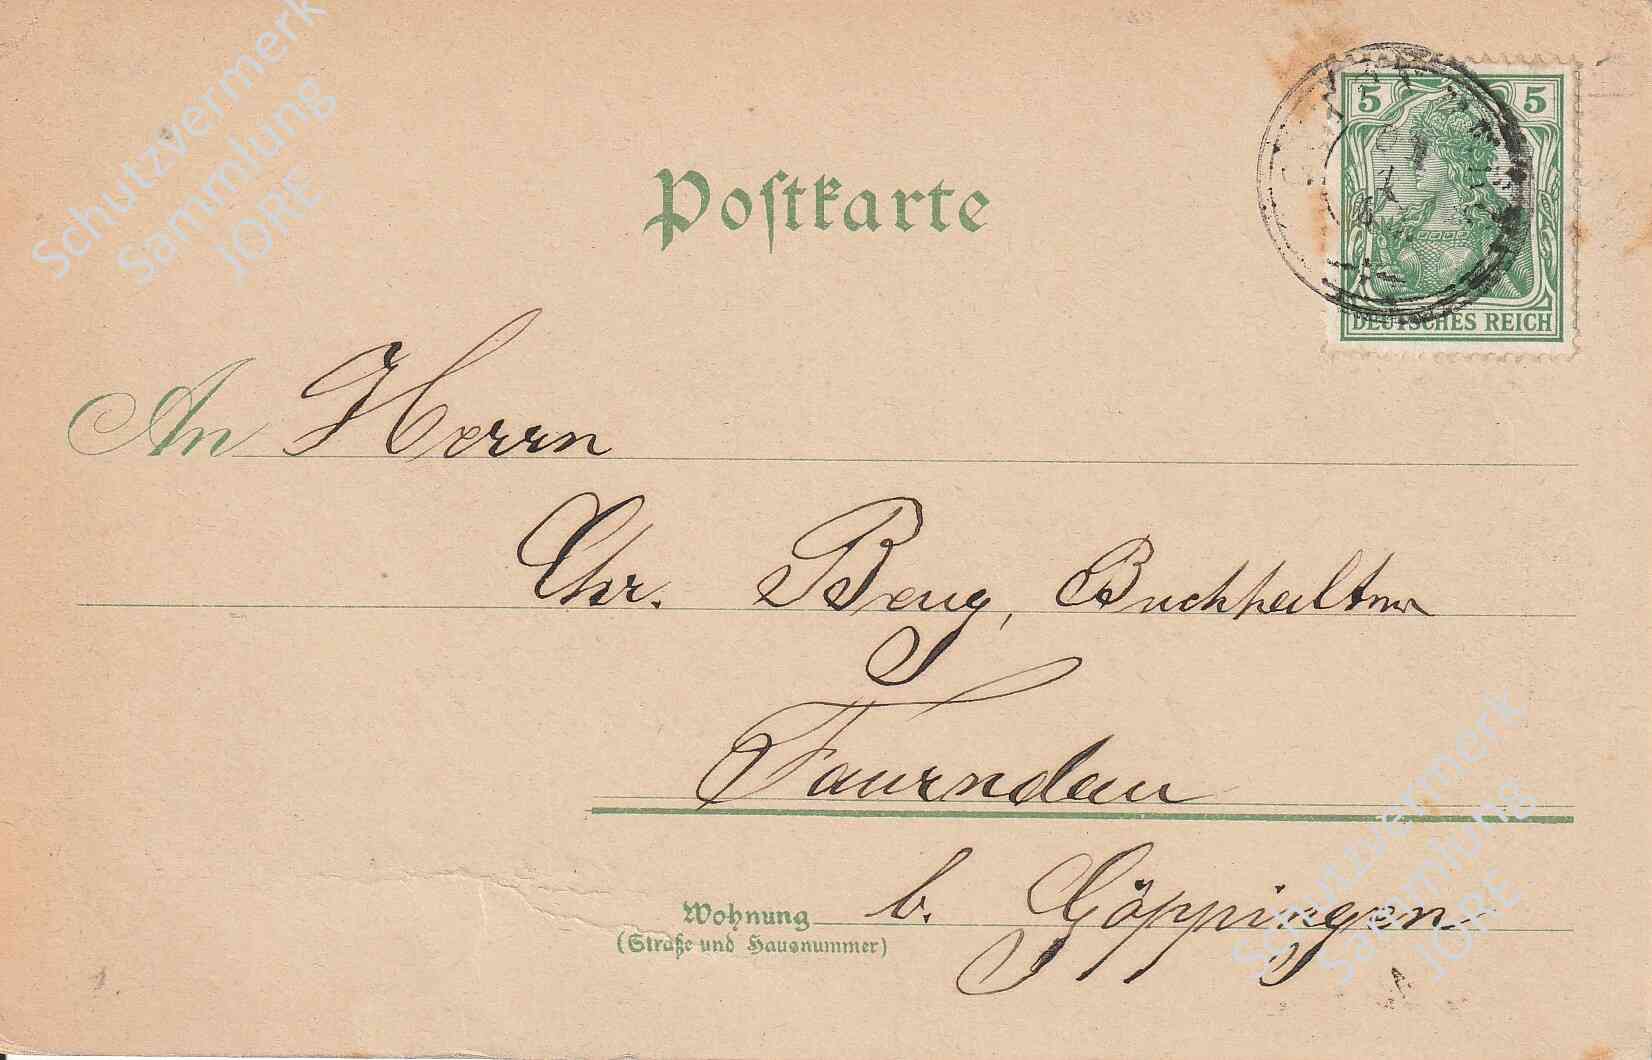 Schutzvermerk
Sammlung
JORE
Postkarte
5 5
DEUTSCHES REICH
An Herrn
Chr. Beug, Buchhalter
Faurndau
b. Göppingen
Wohnung
(Straße und Hausnummer)
Schutzvermerk
Sammlung
JORE